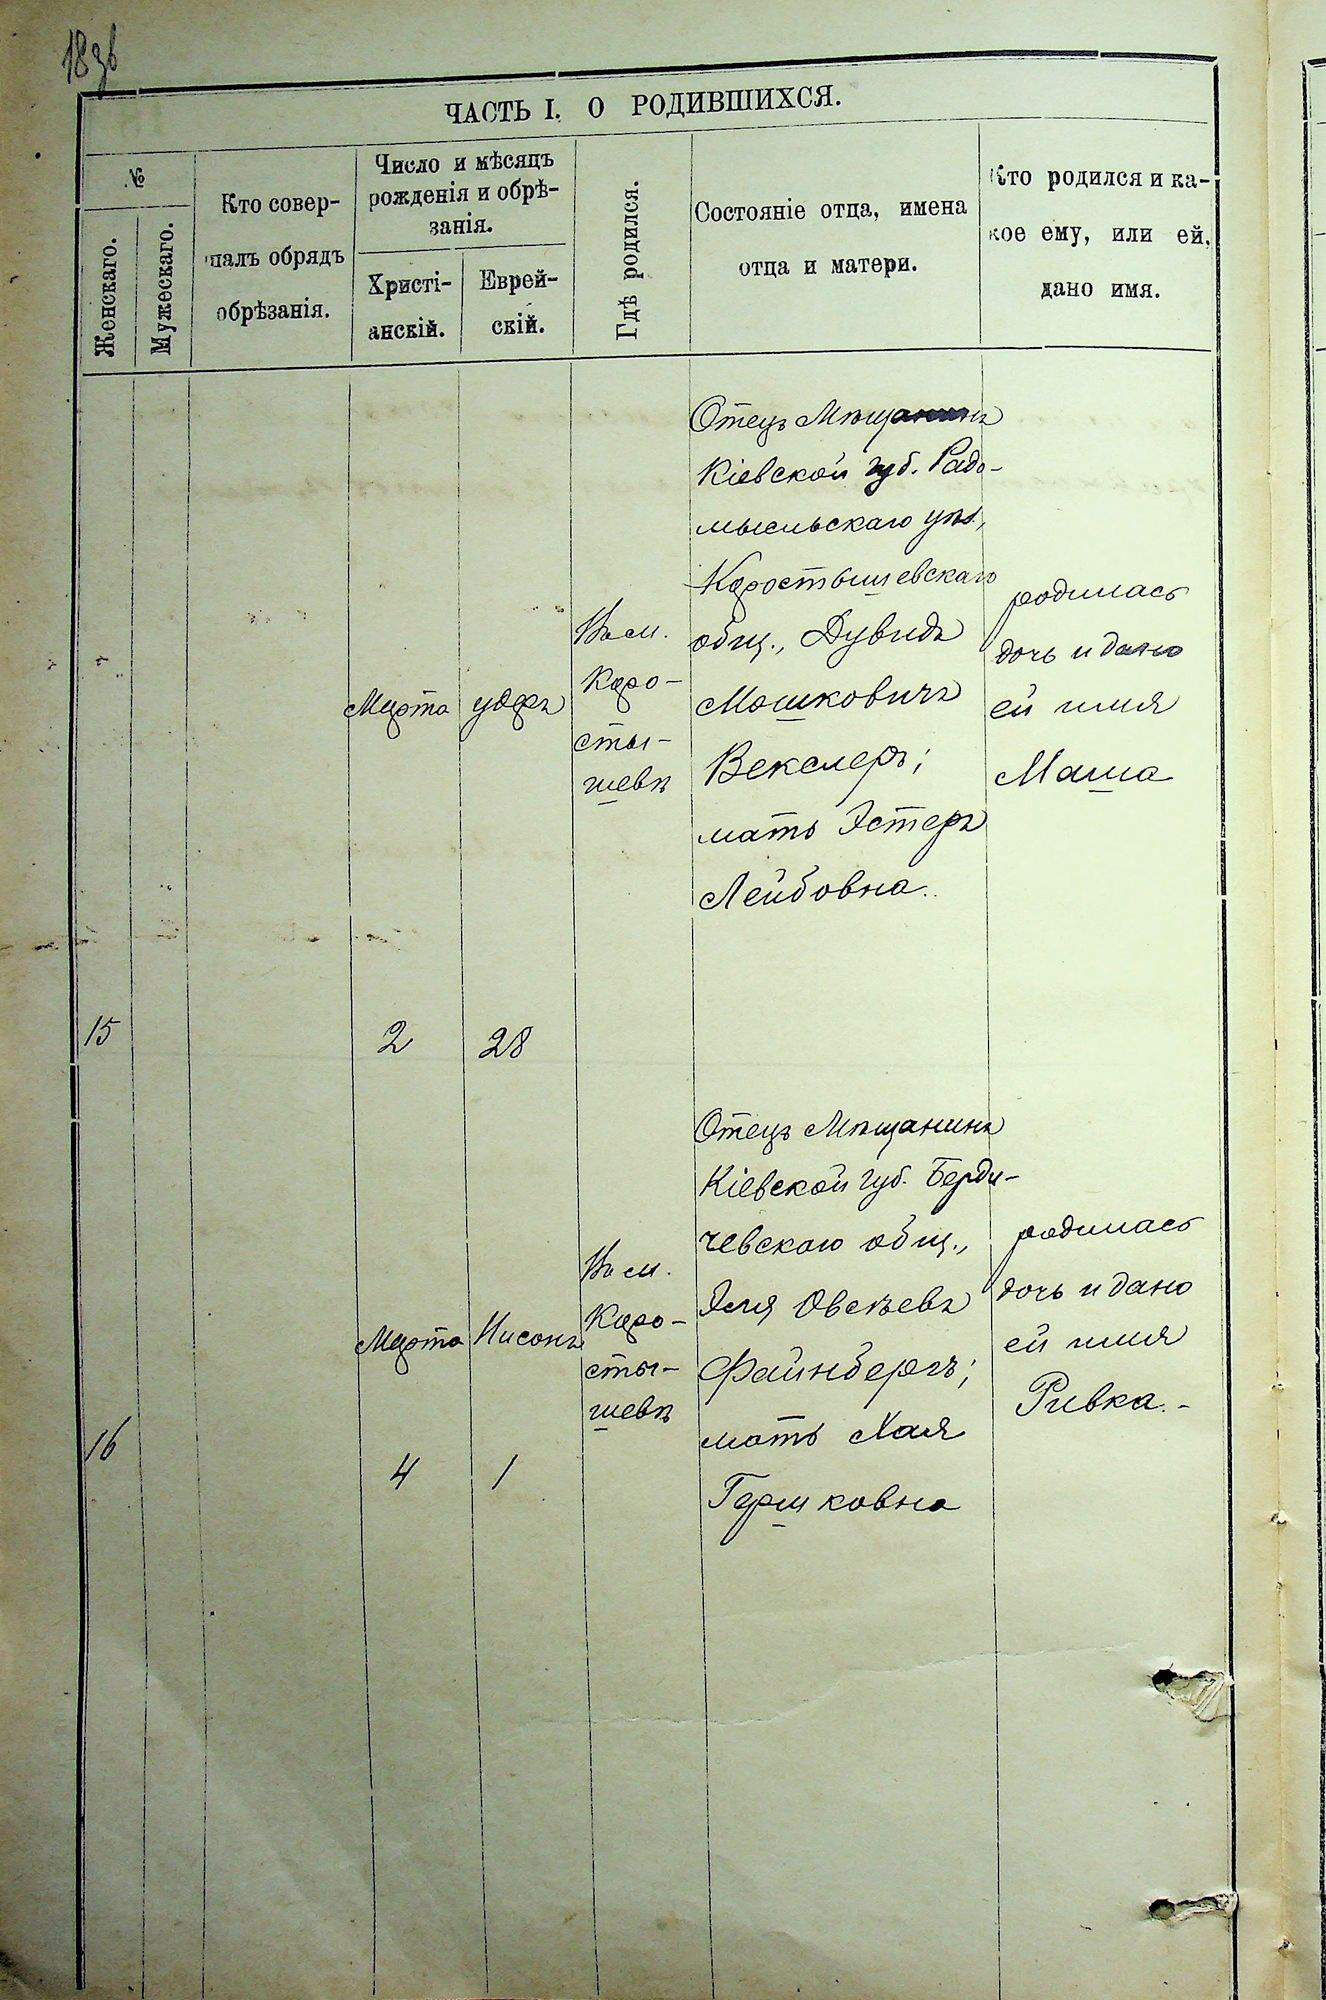 ЧАСТЬ I. О РОДИВШИХСЯ.
№
Женскаго.
Мужескаго.
Кто совер-
шалъ обрядъ
обрѣзанія.
Число и мѣсяцъ
рожденія и обрѣ-
занія.
Христі-
анскій.
Еврей-
скій.
Гдѣ родился.
Состояніе отца, имена
отца и матери.
Кто родился и ка-
кое ему, или ей,
дано имя.
15
Марта
2
28
Въ м.
Коро-
сты-
шевѣ
Отецъ Мѣщанинъ
Кіевской губ. Радо-
мысльскаго уѣз.,
Коростышевскаго
общ., Дувидъ
Мошковичъ
Векслеръ;
мать Эстеръ
Лейбовна.
родилась
дочь и дано
ей имя
Маша
16
Марта
4
Нисонъ
1
Въ м.
Коро-
сты-
шевѣ
Отецъ Мѣщанинъ
Кіевской губ. Берди-
чевскаго общ.,
Эля Овсѣевъ
Файнбергъ;
мать Хая
Гершковна
родилась
дочь и дано
ей имя
Ривка.-